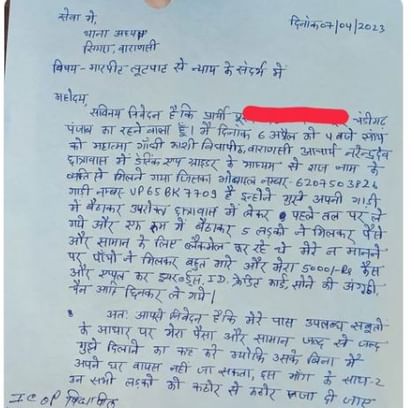 सेवा में,
दिनांक 07/04/2023
थाना अध्यक्ष
सिगरा, वाराणसी
विषय- मारपीट लूटपाट से न्याय के संदर्भ में
महोदय,
सविनय निवेदन है कि प्रार्थी चंडीगढ़
पंजाब का रहने वाला हूँ। मैं दिनांक 6 अप्रैल को 4 बजे शाम
को महात्मा गाँधी काशी विद्यापीठ, वाराणसी आचार्य नरेन्द्रदेव
छात्रावास में एप के माध्यम से राज नाम के
व्यक्ति से मिलने गया जिसका मोबाइल नम्बर- 6207503824
गाडी नम्बर UP65BK7709 है इन्होने मुझे अपनी गाडी
में बैठाकर उपरोक्त छात्रावास में लेकर पहले तल पर ले
गये और एक रूम में बैठाकर 5 लड़को ने मिलकर पैसे
और सामान के लिए ब्लैकमेल कर रहे थे मेरे न मानने
पर पाँचो ने मिलकर बहुत मारे और मेरा 5000/-Rs कैस
और एप्पल का इयरबर्ड्स, I.D. क्रेडिट कार्ड, सोने की अंगूठी,
चैन आदि छिनकर ले गये।
अतः आपसे निवेदन है कि मेरे पास उपलब्ध सबूतो
के आधार पर मेरा पैसा और सामान जल्द से जल्द
मुझे दिलाने का कष्ट करें क्योंकि उसके बिना मैं
अपने घर वापस नहीं जा सकता, इस मांग के साथ-2
उन सभी लड़को को कठोर से कठोर सजा दी जाए